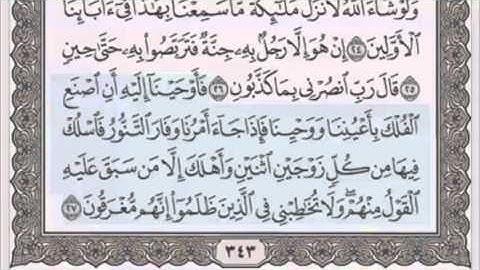 وَلَوْ شَآءَ ٱللَّهُ لَأَنزَلَ مَلَٰٓئِكَةً مَّا سَمِعْنَا بِهَٰذَا فِىٓ ءَابَآئِنَا
ٱلْأَوَّلِينَ ٢٤ إِنْ هُوَ إِلَّا رَجُلٌۢ بِهِۦ جِنَّةٌ فَتَرَبَّصُوا۟ بِهِۦ حَتَّىٰ حِينٍ
٢٥ قَالَ رَبِّ ٱنصُرْنِى بِمَا كَذَّبُونِ ٢٦ فَأَوْحَيْنَآ إِلَيْهِ أَنِ ٱصْنَعِ
ٱلْفُلْكَ بِأَعْيُنِنَا وَوَحْيِنَا فَإِذَا جَآءَ أَمْرُنَا وَفَارَ ٱلتَّنُّورُ فَٱسْلُكْ
فِيهَا مِن كُلٍّ زَوْجَيْنِ ٱثْنَيْنِ وَأَهْلَكَ إِلَّا مَن سَبَقَ عَلَيْهِ
ٱلْقَوْلُ مِنْهُمْ وَلَا تُخَٰطِبْنِى فِى ٱلَّذِينَ ظَلَمُوٓا۟ إِنَّهُم مُّغْرَقُونَ ٢٧
٣٤٣